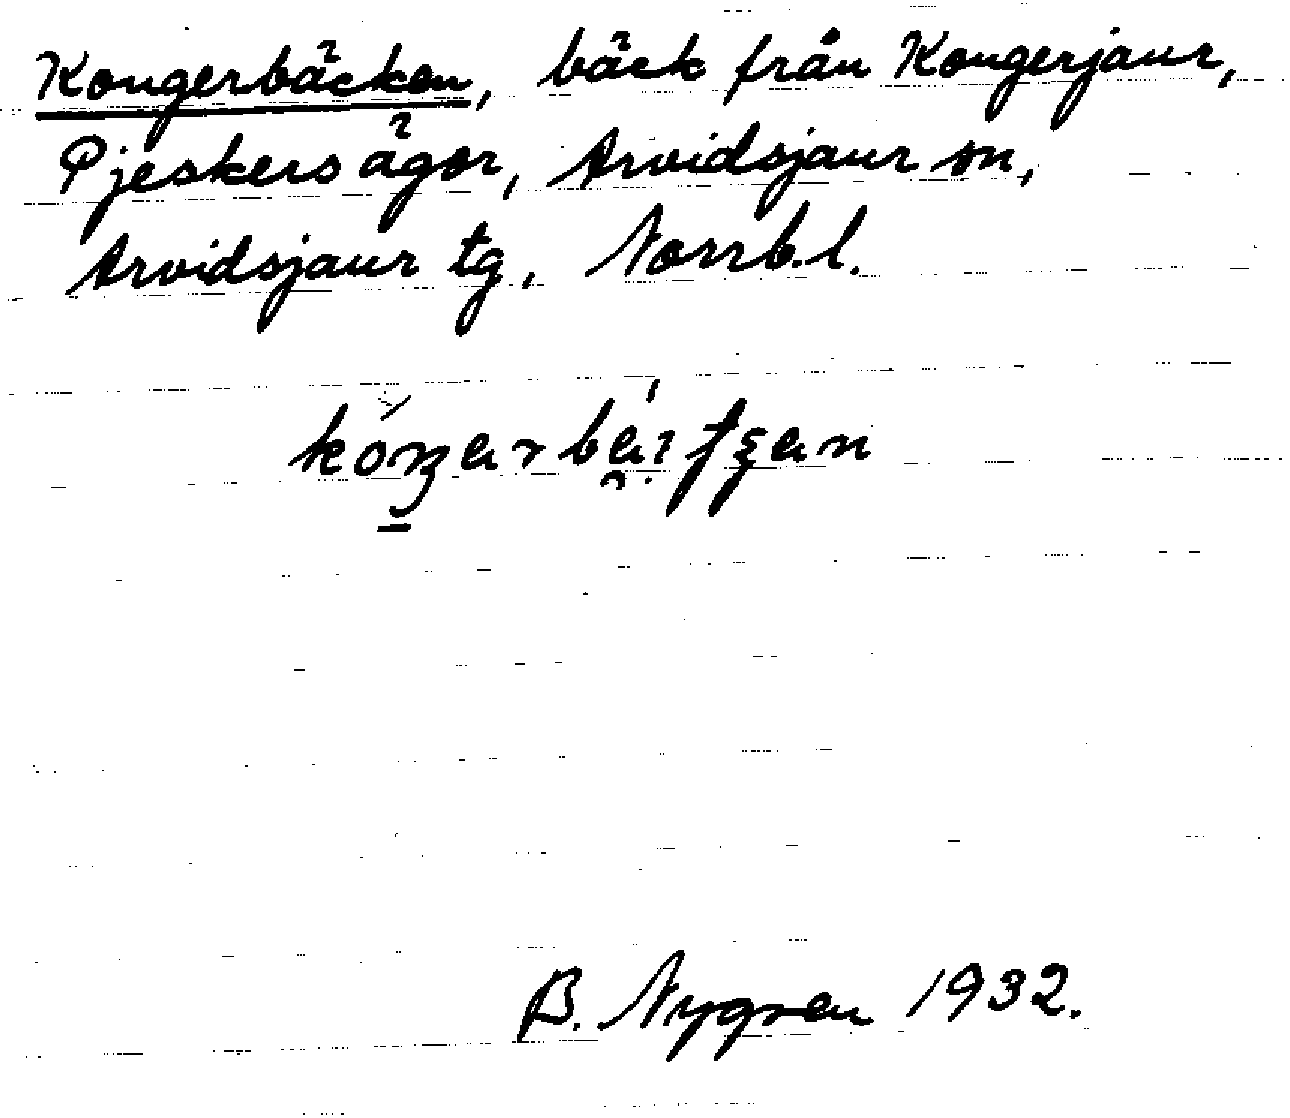 Kongerbäcken, bäck från Kongerjaur,
Pjeskers ägor, Arvidsjaur sn,
Arvidsjaur tg, Norrb. l.
B. Nygren 1932.